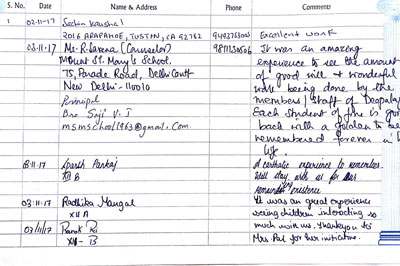 S. No. Date Name & Address Phone Comments
1 02-11-17 Sachin Kaushal
2016 ARAPAHOE, TUSTIN, CA 92782 9402763005 Excellent work
03-11-17 Ms. R. Saxena (Counselor) 9811130506 It was an amazing
Mount St. Mary's School. experience to see the amount
75, Parade Road, Delhi Cantt of good will & wonderful
New Delhi - 110010 work being done by the
Principal members / staff of Deepalaya
Bro Saji V. J Each student of mine is going
msmschool1963@gmail.com back with a golden to be
remembered forever in
life.
03.11.17 Sparsh Pankaj A cathartic experience to remember.
XII B Will stay with us for our
remaining existence
03.11.17 Radhika Mangal It was an great experience
XII A seeing children interacting so
03/11/17 much with us. Thankyou to
XII - B Mrs Pal for her initiative.